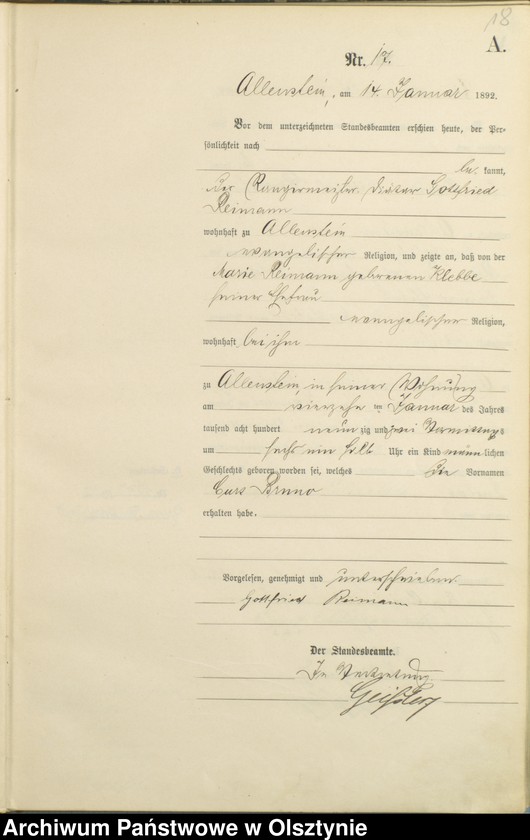 18
A.
Nr. 17.
Allenstein, am 14. Januar 1892.
Vor dem unterzeichneten Standesbeamten erschien heute, der Per-
sönlichkeit nach
be kannt,
der Rangermeister Diätar Gottfried
Reimann
wohnhaft zu Allenstein
evangelischer Religion, und zeigte an, daß von der
Marie Reimann geborenen Klebbe
seiner Ehefrau
evangelischer Religion,
wohnhaft bei ihm
zu Allenstein, in seiner Wohnung
am vierzehn ten Januar des Jahres
tausend acht hundert neun zig und zwei Vormittags
um sechs ein halb Uhr ein Kind männ lichen
Geschlechts geboren worden sei, welches die Vornamen
Curt Bruno
erhalten habe.
Vorgelesen, genehmigt und unterschrieben
Gottfried Reimann
Der Standesbeamte.
In Vertretung
Archiwum Państwowe w Olsztynie